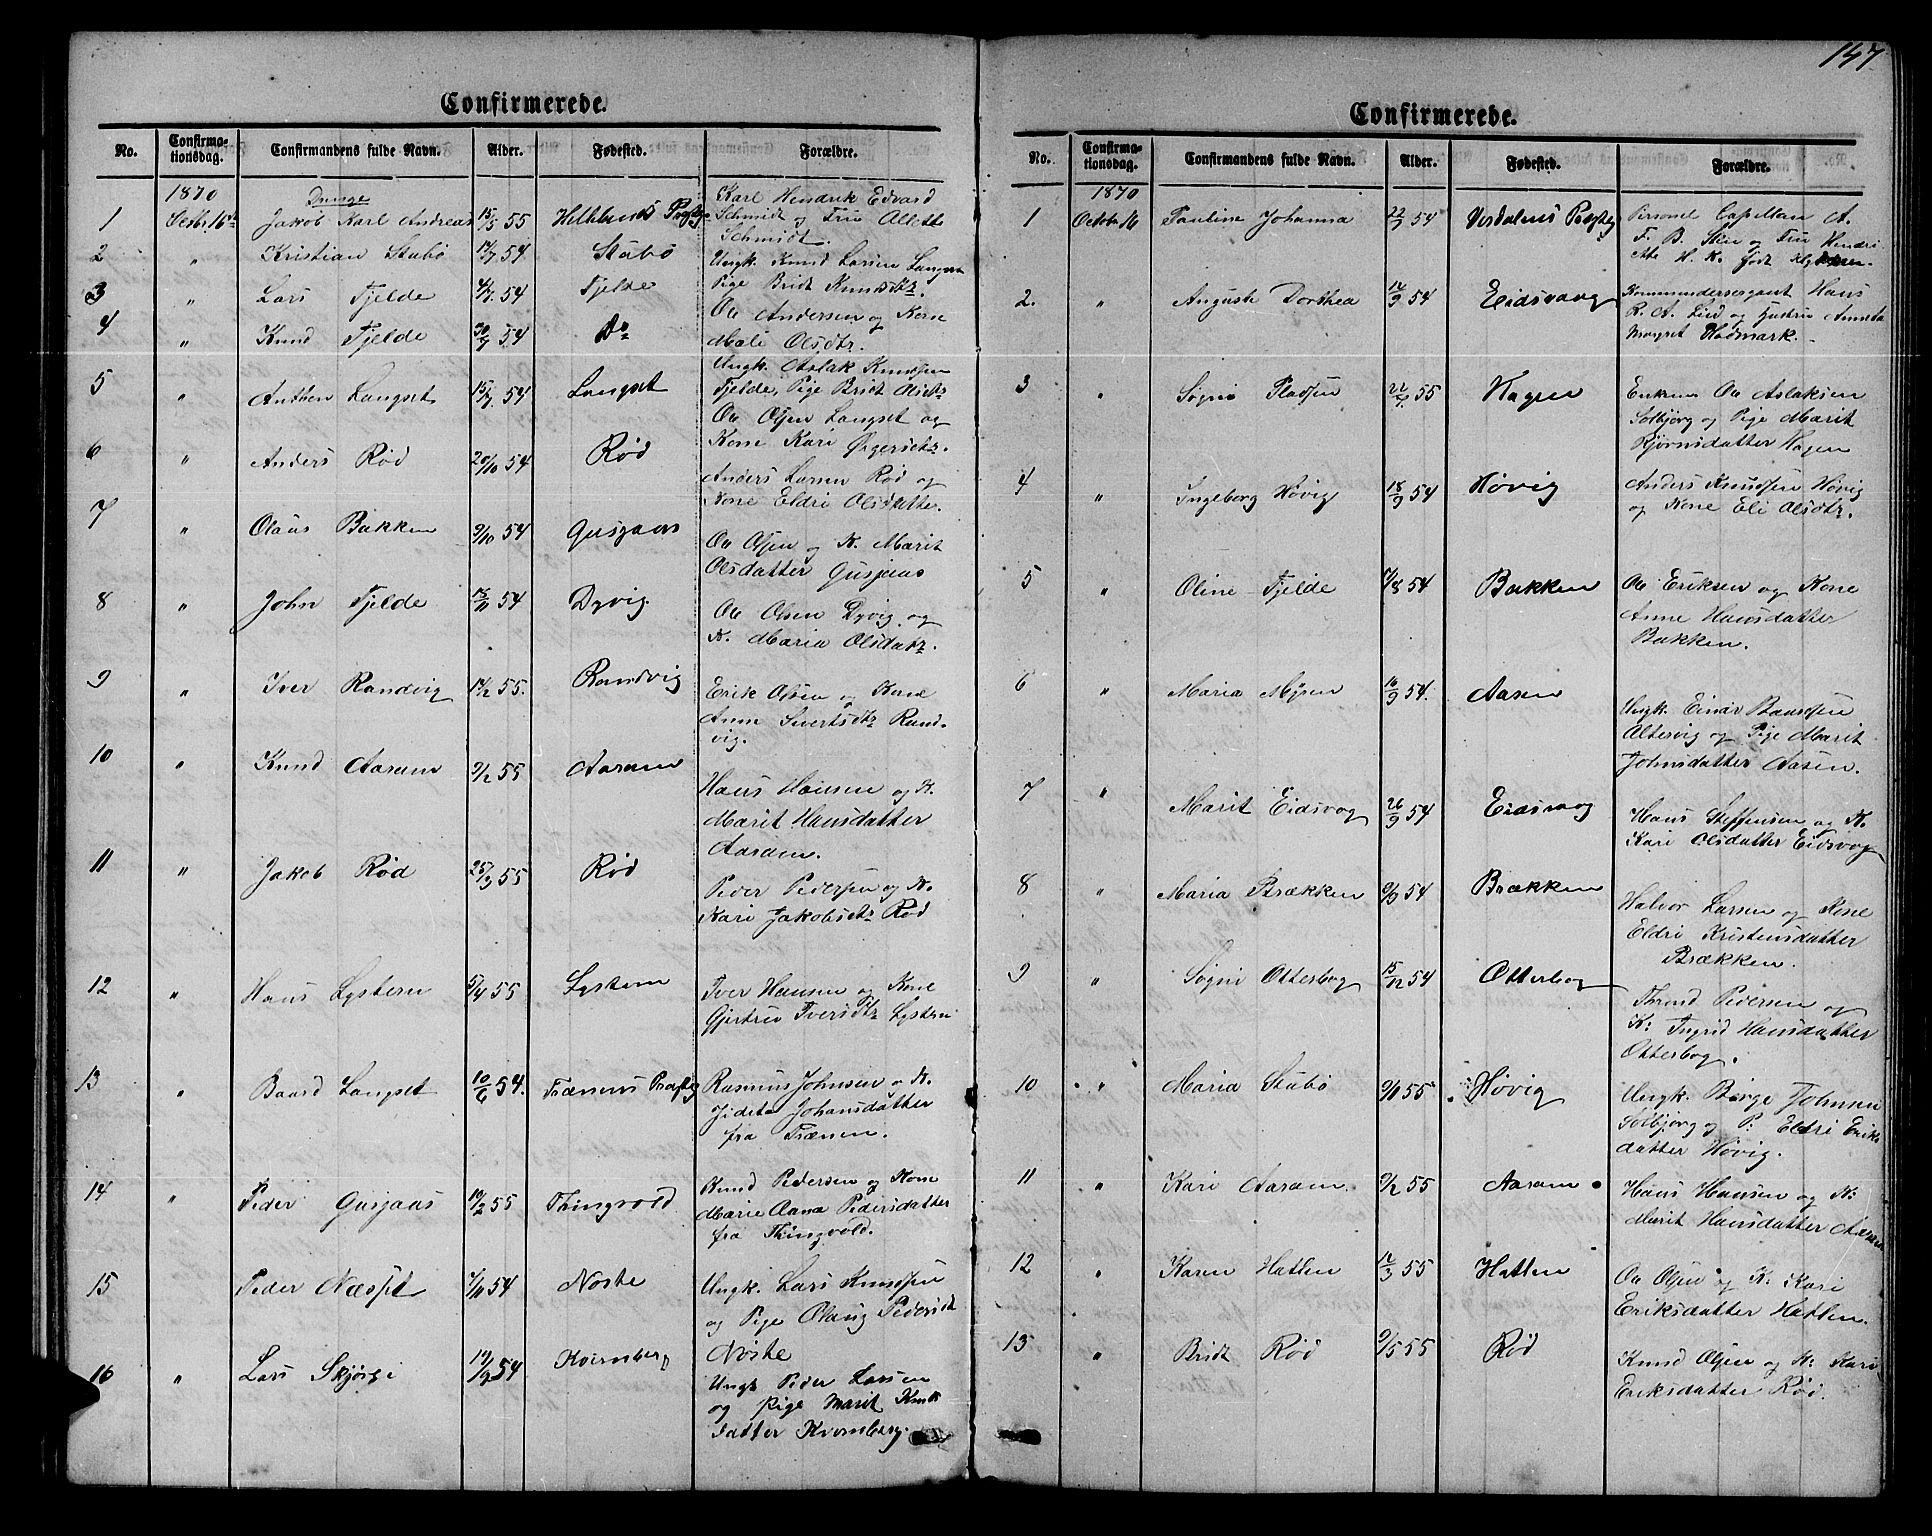 147
Confirmerede.
No. Confirmationsdag. Confirmandens fulde Navn. Alder. Fødested. Forældre.
1870 Drenge
1 Octbr. 16de Jakob Karl Andreas 15/5 55 Karl Hendrik Edvard
Schmidt og Fru Allette
Schmidt.
2 " Kristian Stubø 17/7 54 Stubø Ungk. Knud Larsen Langset
Pige Bridt Knudsdtr.
3 " Lars Fjelde 4/7 54 Fjelde Ole Andersen og Kone
Mali Olsdtr.
4 " Knud Fjelde 30/7 54 Do Ungk. Aslak Knudsen
Fjelde, Pige Bridt Olsdtr
5 " Anthon Langset 15/7 54 Langset Ole Olsen Langset og
Kone Kari
6 " Anders Rød 20/10 54 Rød Anders Larsen Rød og
Kone Eldri Olsdatter.
7 " Olaus Bakken 9/10 54 Gusjaas Ole Olsen og K. Marit
Olsdatter Gusjaas
8 " John Fjelde 15/11 54 Dyvig Ole Olsen Dyvig og
K. Maria Olsdatr.
9 " Iver Randvig 17/2 55. Randvig Erik Olsen og Kone
Anne Sivertsdtr Rand-
vig.
10 " Knud Aaram 9/2 55 Aaram Hans Hansen og K.
Marit Hansdatter
Aaram.
11 " Jakob Rød 25/3 55 Rød Peder Pedersen og K.
Kari Jakobsdtr Rød
12 " Hans Lystern 5/4 55 Lystern Iver Hansen og Kone
Gjertrud Iversdtr Lystern
13 " Baard Langset 10/6 54. Trænens Rasmus Johnsen o K.
Johansdatter
fra Trænen.
14 " Peder Gusjaas 19/2 55 Thingvold Knud Pedersen og Kone
Marie Anna Pedersdatter
fra Thingvold.
15 " Peder Næsset 7/10 54 Noste Ungk. Lars Knudsen
og Pige Olaug Pedersdt
Noste
16 " Lars Skjørsi 19/9 54 Kvernberg Ungk Peder Larsen
og Pige Marit Knuds
datter Kvernberg.
Confirmerede.
No. Confirmationsdag. Confirmandens fulde Navn. Alder. Fødested. Forældre.
1870
1 Octobr. 16 Pauline Johanna 22/7 54 Verdalens Personel Capellan A.
F. B. Sten og Fru Hendri
ette H. K. født
2. " Auguste Dorthea 12/9 54 Eidsvaag Kommandersergeant Hans
R. A. Lied og Hustru
Hodmark.
3 " Søgni Pladsen 22/7 55 Hagen Enkem Ole Aslaksen
Solbjørg og Pige Marit
Bjørnsdatter Hagen
4 " Ingeborg Høvig 18/9 54 Høvig Anders Knudsen Høvig
og Kone Eli Olsdtr.
5 " Oline Fjelde 17/8 54 Bakken Ole Eriksen og Kone
Anne Hansdatter
Bakken.
6 " Maria Myren 16/9 54. Aasen Ungk. Einar Baardsen
Oltervig og Pige Marit
Johnsdatter Aasen.
7 " Marit Eidsvog 26/9 54 Eidsvog Hans Steffensen og K.
Kari Olsdatter Eidsvog
8 " Maria Brækken 9/9 54 Brækken Halvor Larsen og Kone
Eldri Kristensdatter
Brækken.
9 " Søgni Otterbog 15/12 54 Otterbog Thrond Pedersen og
K: Ingrid Hansdatter
Otterbog.
10 " Maria Stubø 9/11 55 Høvig Ungk. Børge Johnsen
Solbjørg og P: Eldri Eriks
datter Høvig.
11 " Kari Aaram. 9/2 55 Aaram Hans Hansen og K:
Marit Hansdatter Aaram
12 " Karen Hatlen 12/3 55 Hatlen Ole Olsen og K. Kari
Eriksdatter Hatlen.
13 " Bridt Rød 9/5 55 Rød Knud Olsen og K: Kari
Eriksdatter Rød.